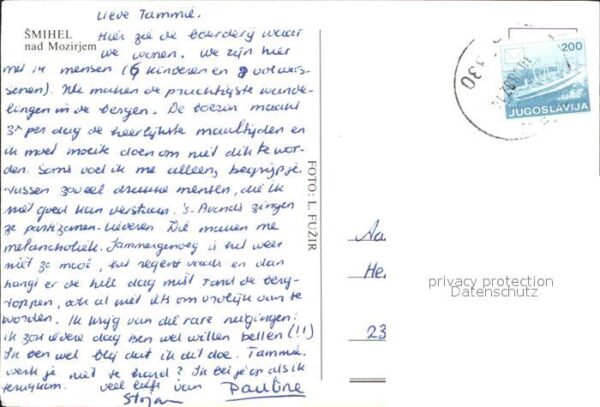 Lieve Tammie.
ŠMIHEL
nad Mozirjem
Hier zie de boerderij waar
we wonen. We zijn hier
met 14 mensen (6 kinderen en 8 volwas-
senen). We maken de prachtigste wande-
lingen in de bergen. De boerin maakt
3x per dag de heerlijkste maaltijden en
ik moet moeite doen om niet dik te wor-
den. Soms voel ik me alleen, begrijp je.
Tussen zoveel mensen, die ik
niet goed kan verstaan. 's-Avonds zingen
ze partizanen-liederen. Die maken me
melancholiek. Jammergenoeg is het weer
niet zo mooi, het regent vaak en dan
hangt er de hele dag mist rond de berg-
toppen, ook al niet iets om vrolijk van te
worden. Ik krijg van die rare neigingen:
ik zou iedere dag Ben wel willen bellen (!!)
Ik ben wel blij dat ik dit doe. Tammie,
werk je niet te hard? Ik bel je op als ik
terugkom. Veel liefs van Pauline
Stojan
FOTO: L. FUŽIR
330
200
JUGOSLAVIJA
Aa
He
23
privacy protection
Datenschutz